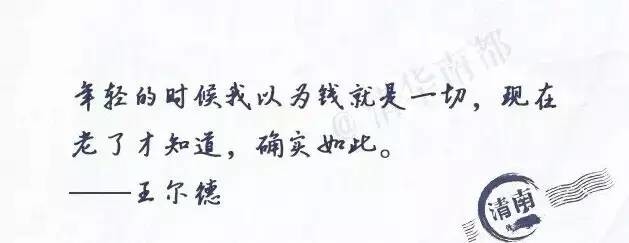 年轻的时候我以为钱就是一切，现在
老了才知道，确实如此。
——王尔德
@清华南都
清南